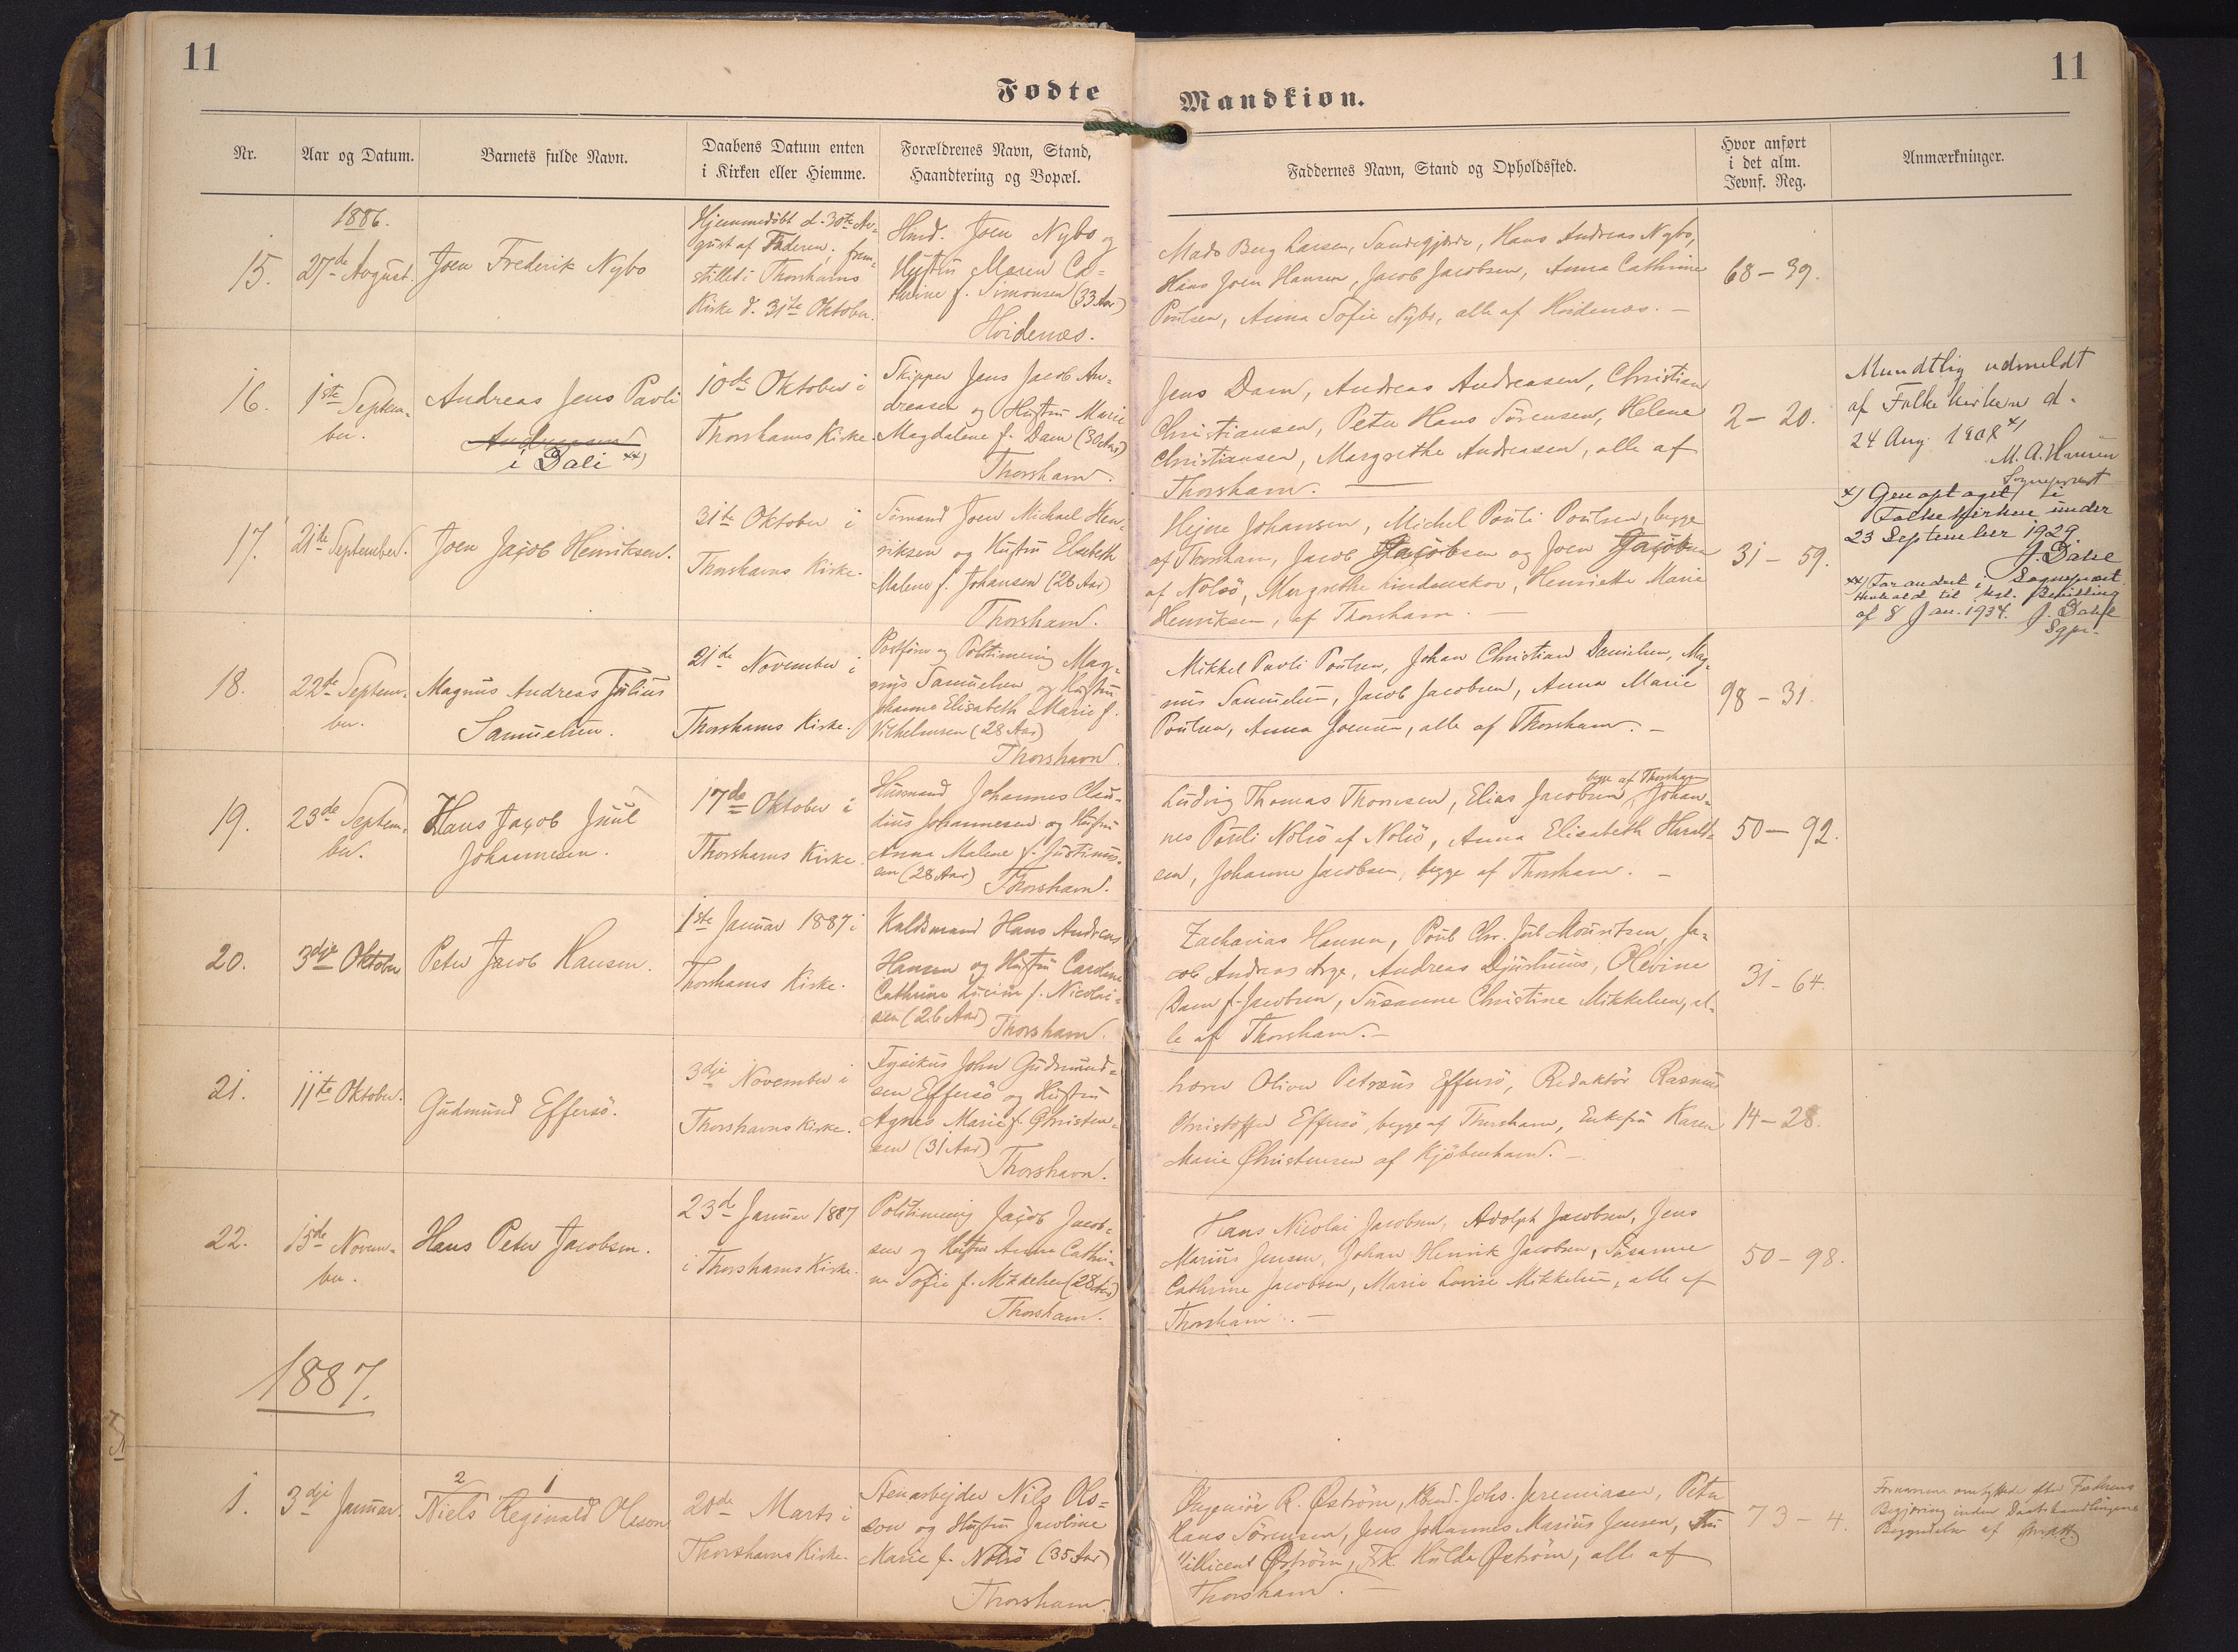 11
11
Fødte
Mandkiøn.
Nr.
Aar og Datum.
Barnets fulde Navn.
Daabens Datum enten
i Kirken eller Hiemme.
Forældrenes Navn, Stand,
Haandtering og Bopæl.
Faddernes Navn, Stand og Opholdssted.
Hvor anført
i det alm.
Jevnf. Reg.
Anmærkninger.
1886.
15.
27de August.
Joen Frederik Nybo
Hjemmedøbt d. 30te Au-
gust af Faderen; frem-
stillet i Thorshavns
Kirke d. 31te Oktober.
Hmd. Joen Nybo og
Hustru Maren Ca-
thrine f. Simonsen (33 Aar)
Hvidenæs.
Mads Berg Larsen, Sandegjærde, Hans Andreas Nybo,
Hans Joen Hansen, Jacob Jacobsen, Anna Cathrine
Poulsen, Anna Sofie Nybo, alle af Hvidenæs. –
68 – 39.
16.
1ste Septem-
ber.
Andreas Jens Pauli
Andreasen
i Dali xx)
10de Oktober i
Thorshavns Kirke.
Skipper Jens Jacob An-
dreasen og Hustru Marie
Magdalene f. Dam (30 Aar)
Thorshavn.
Jens Dam, Andreas Andreasen, Christian
Christiansen, Peter Hans Sörensen, Helene
Christiansen, Margrethe Andreasen, alle af
Thorshavn. —
2 – 20.
Mundtlig udmeldt
af Folkekirken d.
24 Aug. 1908 x)
M. A. Hansen
Sognepræst
x) Genoptaget i
Folkekirken under
23 September 1929
J. Dahl
Sognepræst
xx) Forandret i
Henhold til kgl. Bevilling
af 8 Jan. 1934. J. Dahl
Sgpr.
17.
21de September.
Joen Jacob Henriksen.
31te Oktober i
Thorshavns Kirke.
Sömand Joen Michael Hen-
riksen og Hustru Elsebeth
Malene f. Johansen (26 Aar)
Thorshavn.
Hejne Johansen, Michel Pouli Poulsen, begge
af Thorshavn, Jacob Jacobsen og Joen Jacobsen
af Nolsö, Margrethe Lindenskov, Henriette Marie
Henriksen, af Thorshavn. —
31 – 59.
18.
22de Septem-
ber.
Magnus Andreas Julius
Samuelsen.
21de November i
Thorshavns Kirke.
Postförer og Politimening Mag-
nus Samuelsen og Hustru
Johanne Elisabeth Marie f.
Vilhelmsen (28 Aar)
Thorshavn.
Mikkel Pauli Poulsen, Johan Christian Danielsen, Mag-
nus Samuelsen, Jacob Jacobsen, Anna Marie
Poulsen, Anna Joensen, alle af Thorshavn. –
98 – 31.
19.
23de Septem-
ber.
Hans Jacob Juul
Johannesen.
17de Oktober i
Thorshavns Kirke.
Husmand Johannes Clau-
dius Johannesen og Hustru
Anna Malene f. Justinus-
sen (28 Aar) Thorshavn.
begge af Thorshavn
Ludvig Thomas Thomsen, Elias Jacobsen, Johan-
nes Pouli Nolsö af Nolsö, Anna Elisabeth Harald-
sen, Johanne Jacobsen, begge af Thorshavn. –
50 – 92.
20.
3dje Oktober
Peter Jacob Hansen.
1ste Januar 1887 i
Thorshavns Kirke.
Kuldsmand Hans Andreas
Hansen og Hustru Caroline
Cathrine Lucine f. Nicolai-
sen (26 Aar) Thorshavn.
Zacharias Hansen, Poul Chr. Juul Mouritsen, Ja-
cob Andreas Arge, Andreas Djurhuus, Olevine
Dam f. Jacobsen, Susanne Christine Mikkelsen, al-
le af Thorshavn. –
31 – 64.
21.
11te Oktober.
Gudmund Effersö.
3dje November i
Thorshavns Kirke.
Fysikus John Gudmund-
sen Effersö og Hustru
Agnes Marie f. Christen-
sen (31 Aar)
Thorshavn.
Oliver Petræus Effersö, Redaktör Rasmus
Christoffer Effersö, begge af Thorshavn, Enkefru Karen
Marie Christensen af Kjöbenhavn. –
14 – 28.
22.
15de Novem-
ber.
Hans Peter Jacobsen.
23de Januar 1887
i Thorshavns Kirke.
Politimening Jacob Jacob-
sen og Hustru Anna Cathri-
ne Sofie f. Mikkelsen (28 Aar)
Thorshavn.
Hans Nicolai Jacobsen, Adolph Jacobsen, Jens
Marius Jensen, Johan Henrik Jacobsen, Susanne
Cathrine Jacobsen, Marie Lovise Mikkelsen, alle af
Thorshavn. –
50 – 98.
1887.
1.
3dje Januar.
2 1
Niels Reginald Olsson
20de Marts i
Thorshavns Kirke.
Stenarbejder Nils Ols-
son og Hustru Jacobine
Marie f. Nolsö (35 Aar)
Thorshavn.
Ingeniör R. Öström, Johs. Jeremiasen, Peter
Hans Sörensen, Jens Johannes Marius Jensen, Fru
Millicent Öström, Frk. Hulda Öström, alle af
Thorshavn. –
73 – 4.
Fornavnene ombyttede efter Faderens
Begjæring inden Daabshandlingens
Begyndelse af